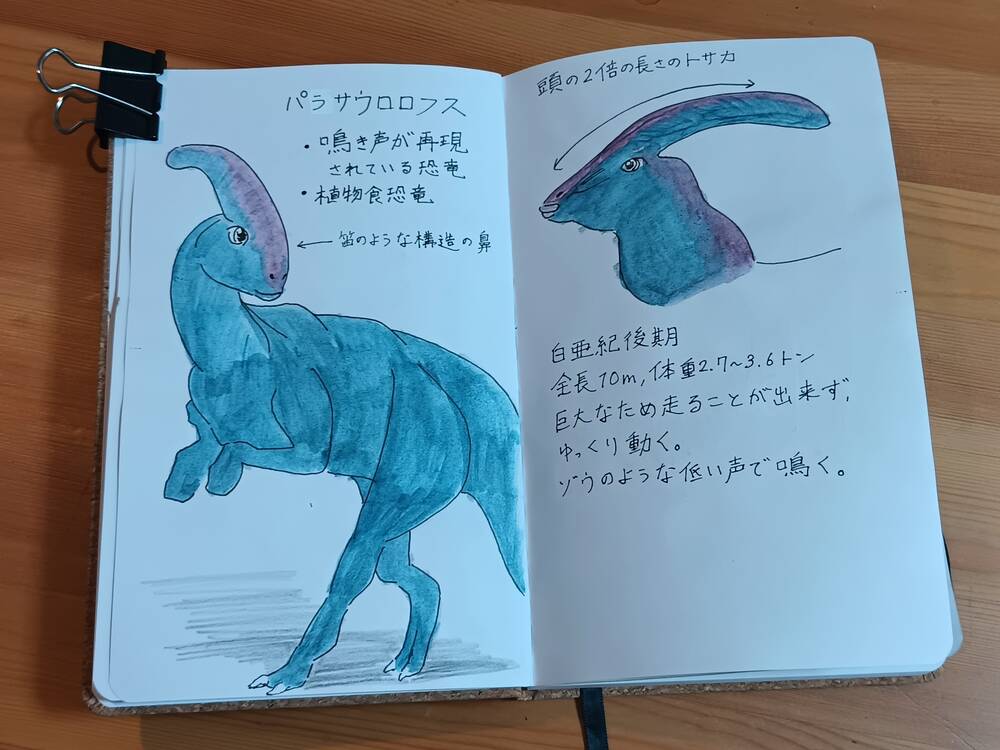 パラサウロロフス
・鳴き声が再現
されている恐竜
・植物食恐竜
笛のような構造の鼻
頭の2倍の長さのトサカ
白亜紀後期
全長10m,体重2.7~3.6トン
巨大なため走ることが出来ず,
ゆっくり動く。
ゾウのような低い声で鳴く。